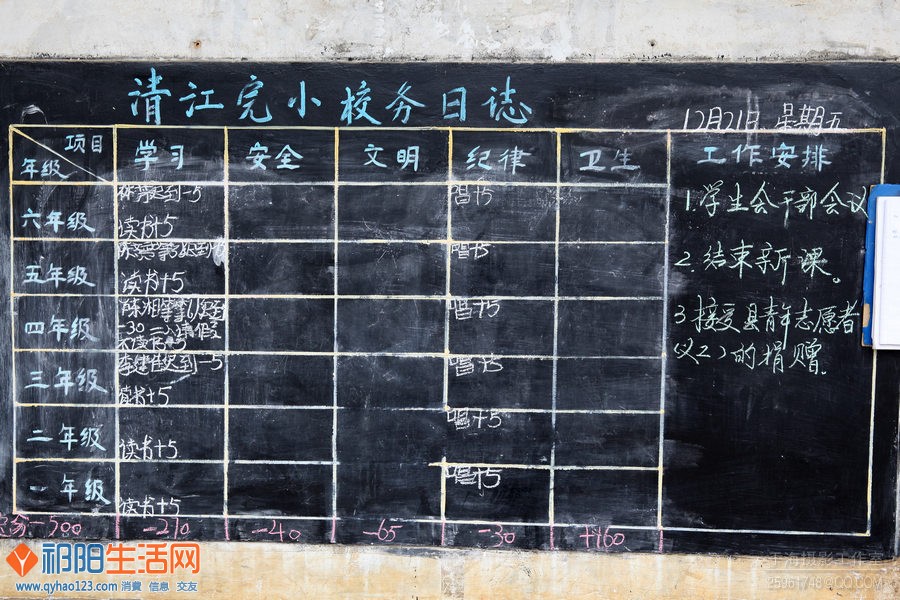 清江完小校务日志
12月21日 星期五
项目
年级
学习
安全
文明
纪律
卫生
工作安排
六年级
读书+5
唱+5
五年级
读书+5
唱+5
四年级
唱+5
三年级
读书+5
唱+5
二年级
读书+5
唱+5
一年级
读书+5
唱+5
1.学生会干部会议
2.结束新课。
3.接受县青年志愿者
(义工)的捐赠.
-500
-210
-40
-65
-30
+160
祁阳生活网
www.qyhao123.com 消費 信息 交友
于海摄影工作室
25961748@QQ.COM